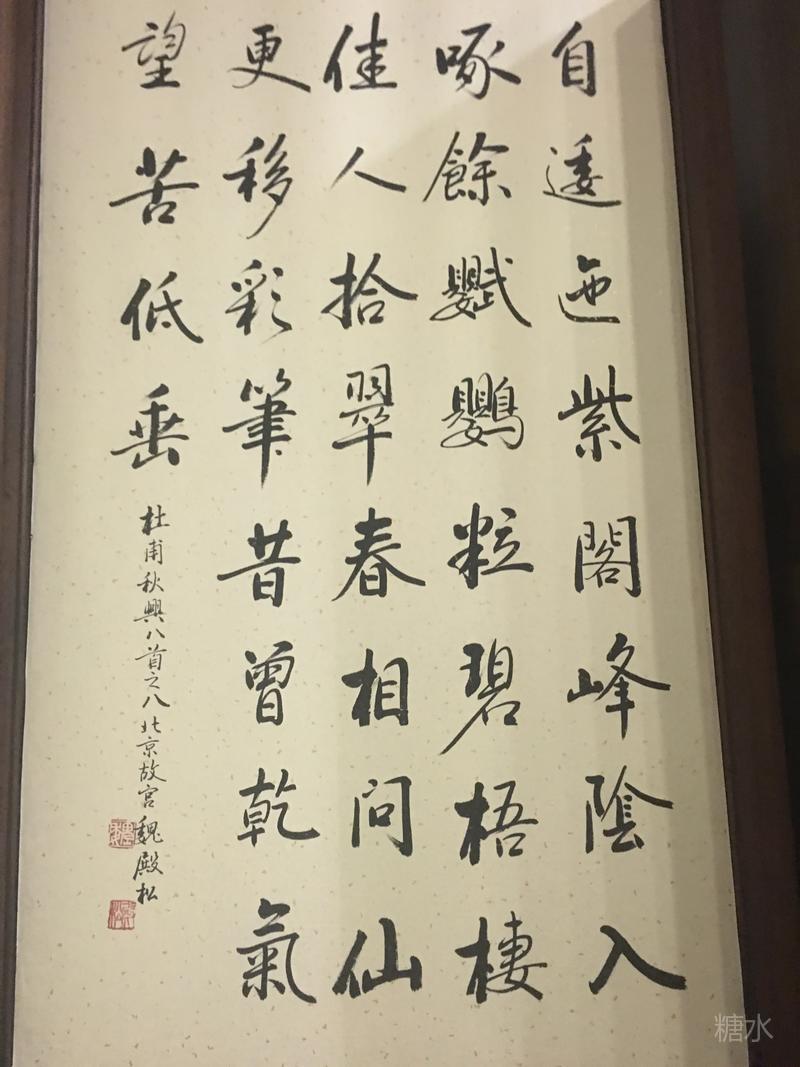 自逶迤紫閣峰陰入
啄餘鸚粒碧梧棲
佳人拾翠春相問仙
更移彩筆昔曾乾氣
望苦低垂
杜甫秋興八首之八北京故宮魏殿松
糖水